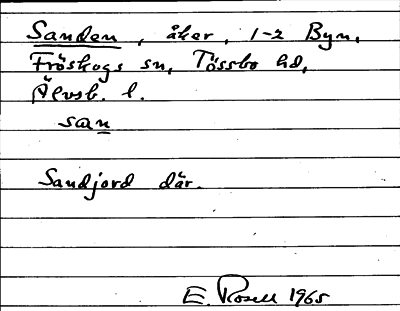 Sanden, åker, 1-2 Byn,
Fröskogs sn, Tössbo hd,
Älvsb. l.
san
Sandjord där.
E. Rosell 1965